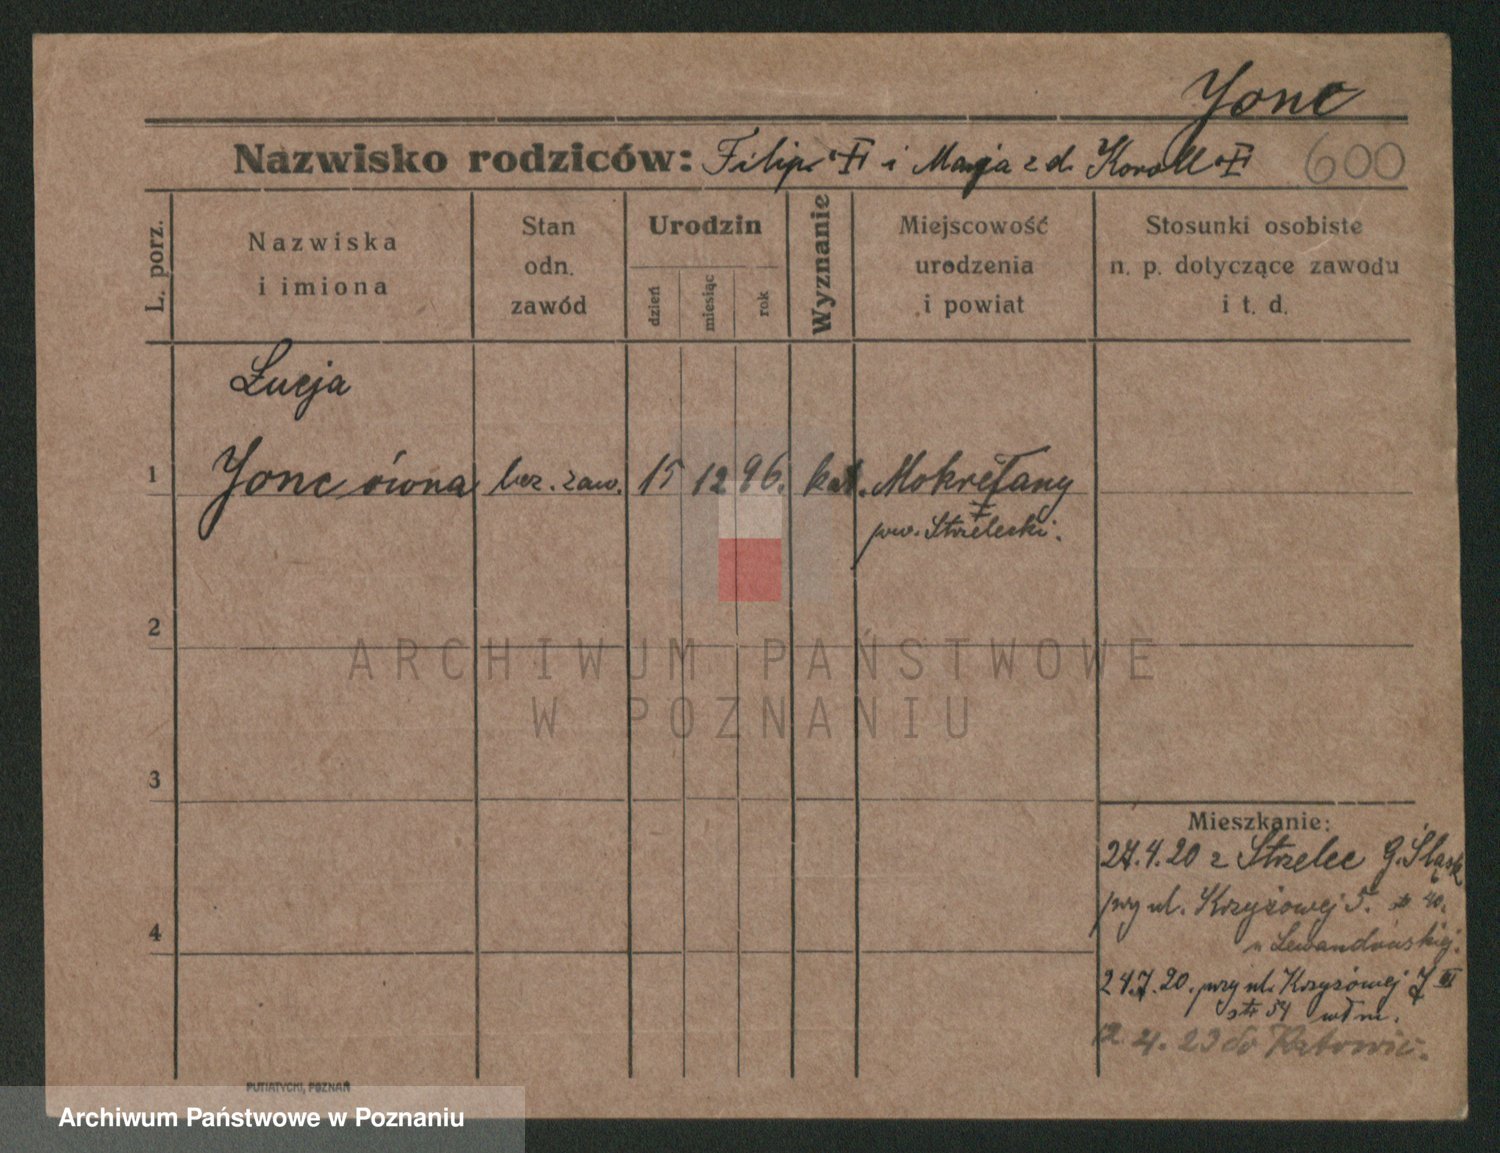 Yonc
Nazwisko rodziców: Filip i Marja z d. Koroll
600
L. porz.
Nazwiska
i imiona
Stan
odn.
zawód
Urodzin
dzień
miesiąc
rok
Wyznanie
Miejscowość
urodzenia
i powiat
Stosunki osobiste
n. p. dotyczące zawodu
i t. d.
Łucja
1 Yonc ówna bez. zaw. 15 12 96. kat. Mokrełany
pow. Strzelecki.
2
ARCHIWUM PAŃSTWOWE
W POZNANIU
3
Mieszkanie:
27.4.20 z Strzelec G. Śląsk
przy ul. Krzyżowej 5. 40.
u Lewandowskiej.
4
24.7.20. przy ul. Krzyżowej 7 III
str 54 wł m.
12. 4. 23 do Katowic.
PUTIATYCKI, POZNAŃ
Archiwum Państwowe w Poznaniu